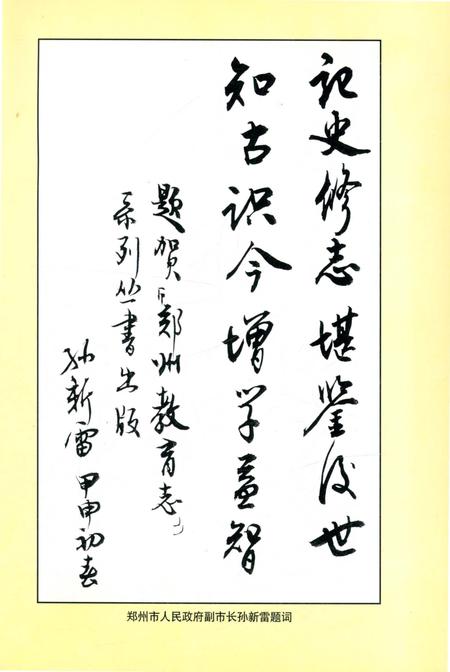 记史修志堪鉴后世
知古识今增学益智
题贺《郑州教育志》
系列丛书出版
孙新雷 甲申初春
郑州市人民政府副市长孙新雷题词